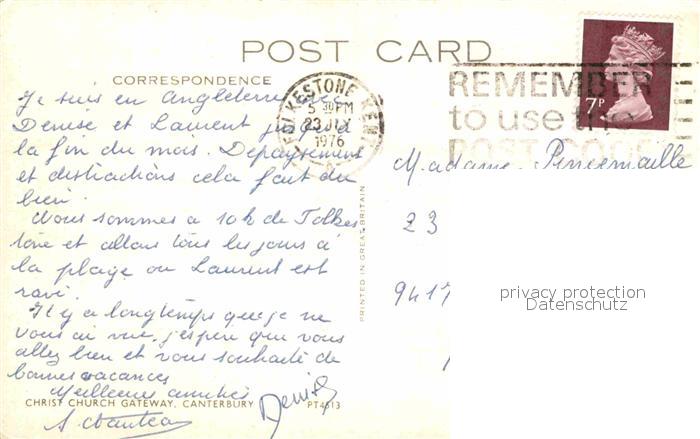 POST CARD
CORRESPONDENCE
Je suis en Angleterre avec
Denise et Laurent jusqu'à
la fin du mois. Dépaysement
et distractions cela fait du
bien.
Nous sommes à 10 k de Folkes
tone et allons tous les jours à
la plage ou Laurent est
ravi.
Il y a longtemps que je ne
vous ai vue, j'espère que vous
allez bien et vous souhaite de
bonnes vacances
Meilleures amitiés
Denise
CHRIST CHURCH GATEWAY, CANTERBURY PT4613
FOLKESTONE KENT
5 30 PM
23 JLY
1976
REMEMBER
to use the
POST CODE
7P
PRINTED IN GREAT BRITAIN
Madame
23
9417
privacy protection
Datenschutz